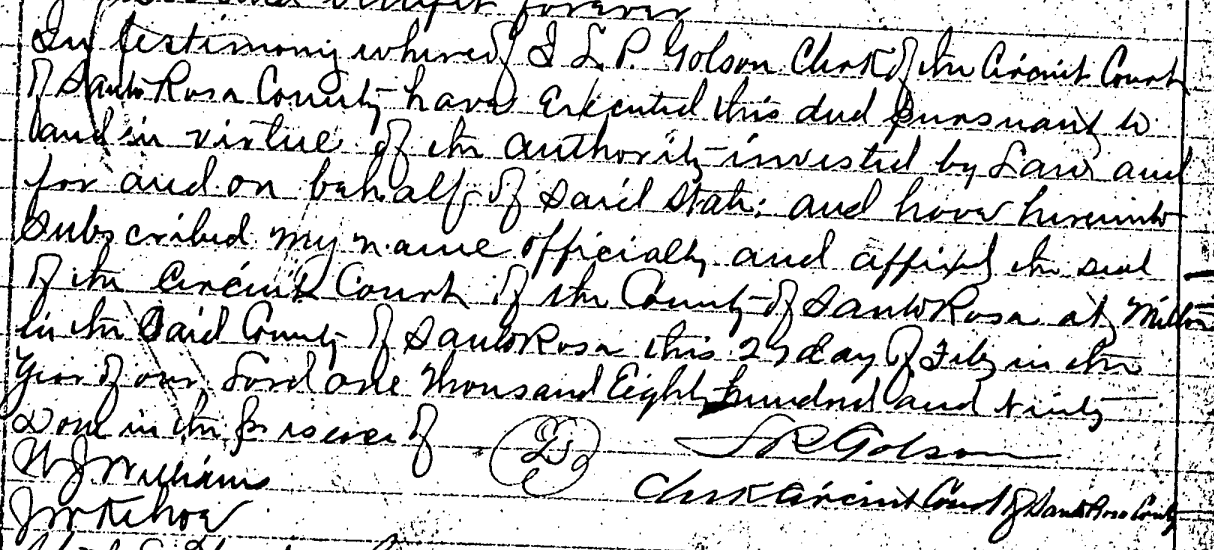 benefit forever
In testimony whereof I L. P. Golson Clerk of the Circuit Court
of Santa Rosa County have Executed this deed pursuant to
and in virtue of the authority invested by Law and
for and on behalf of said State; and have hereunto
subscribed my name officially and affixed the seal
of the Circuit Court of the County of Santa Rosa at Milton
in the Said County of Santa Rosa this 27 day of Feby in the
Year of our Lord one Thousand Eight hundred and ninety
Done in the presence of
LS
L P Golson
W J Williams
Clerk Circuit Court of Santa Rosa County
J W Kehoe